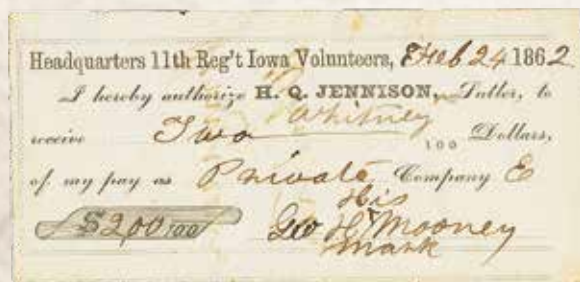 Headquarters 11th Reg't Iowa Volunteers, Feb 24 1862
I hereby authorize H. Q. JENNISON, Sutler, to
Whitney
receive Two 100 Dollars,
of my pay as Private, Company E
His
$2,00/100 Geo H. Mooney
mark